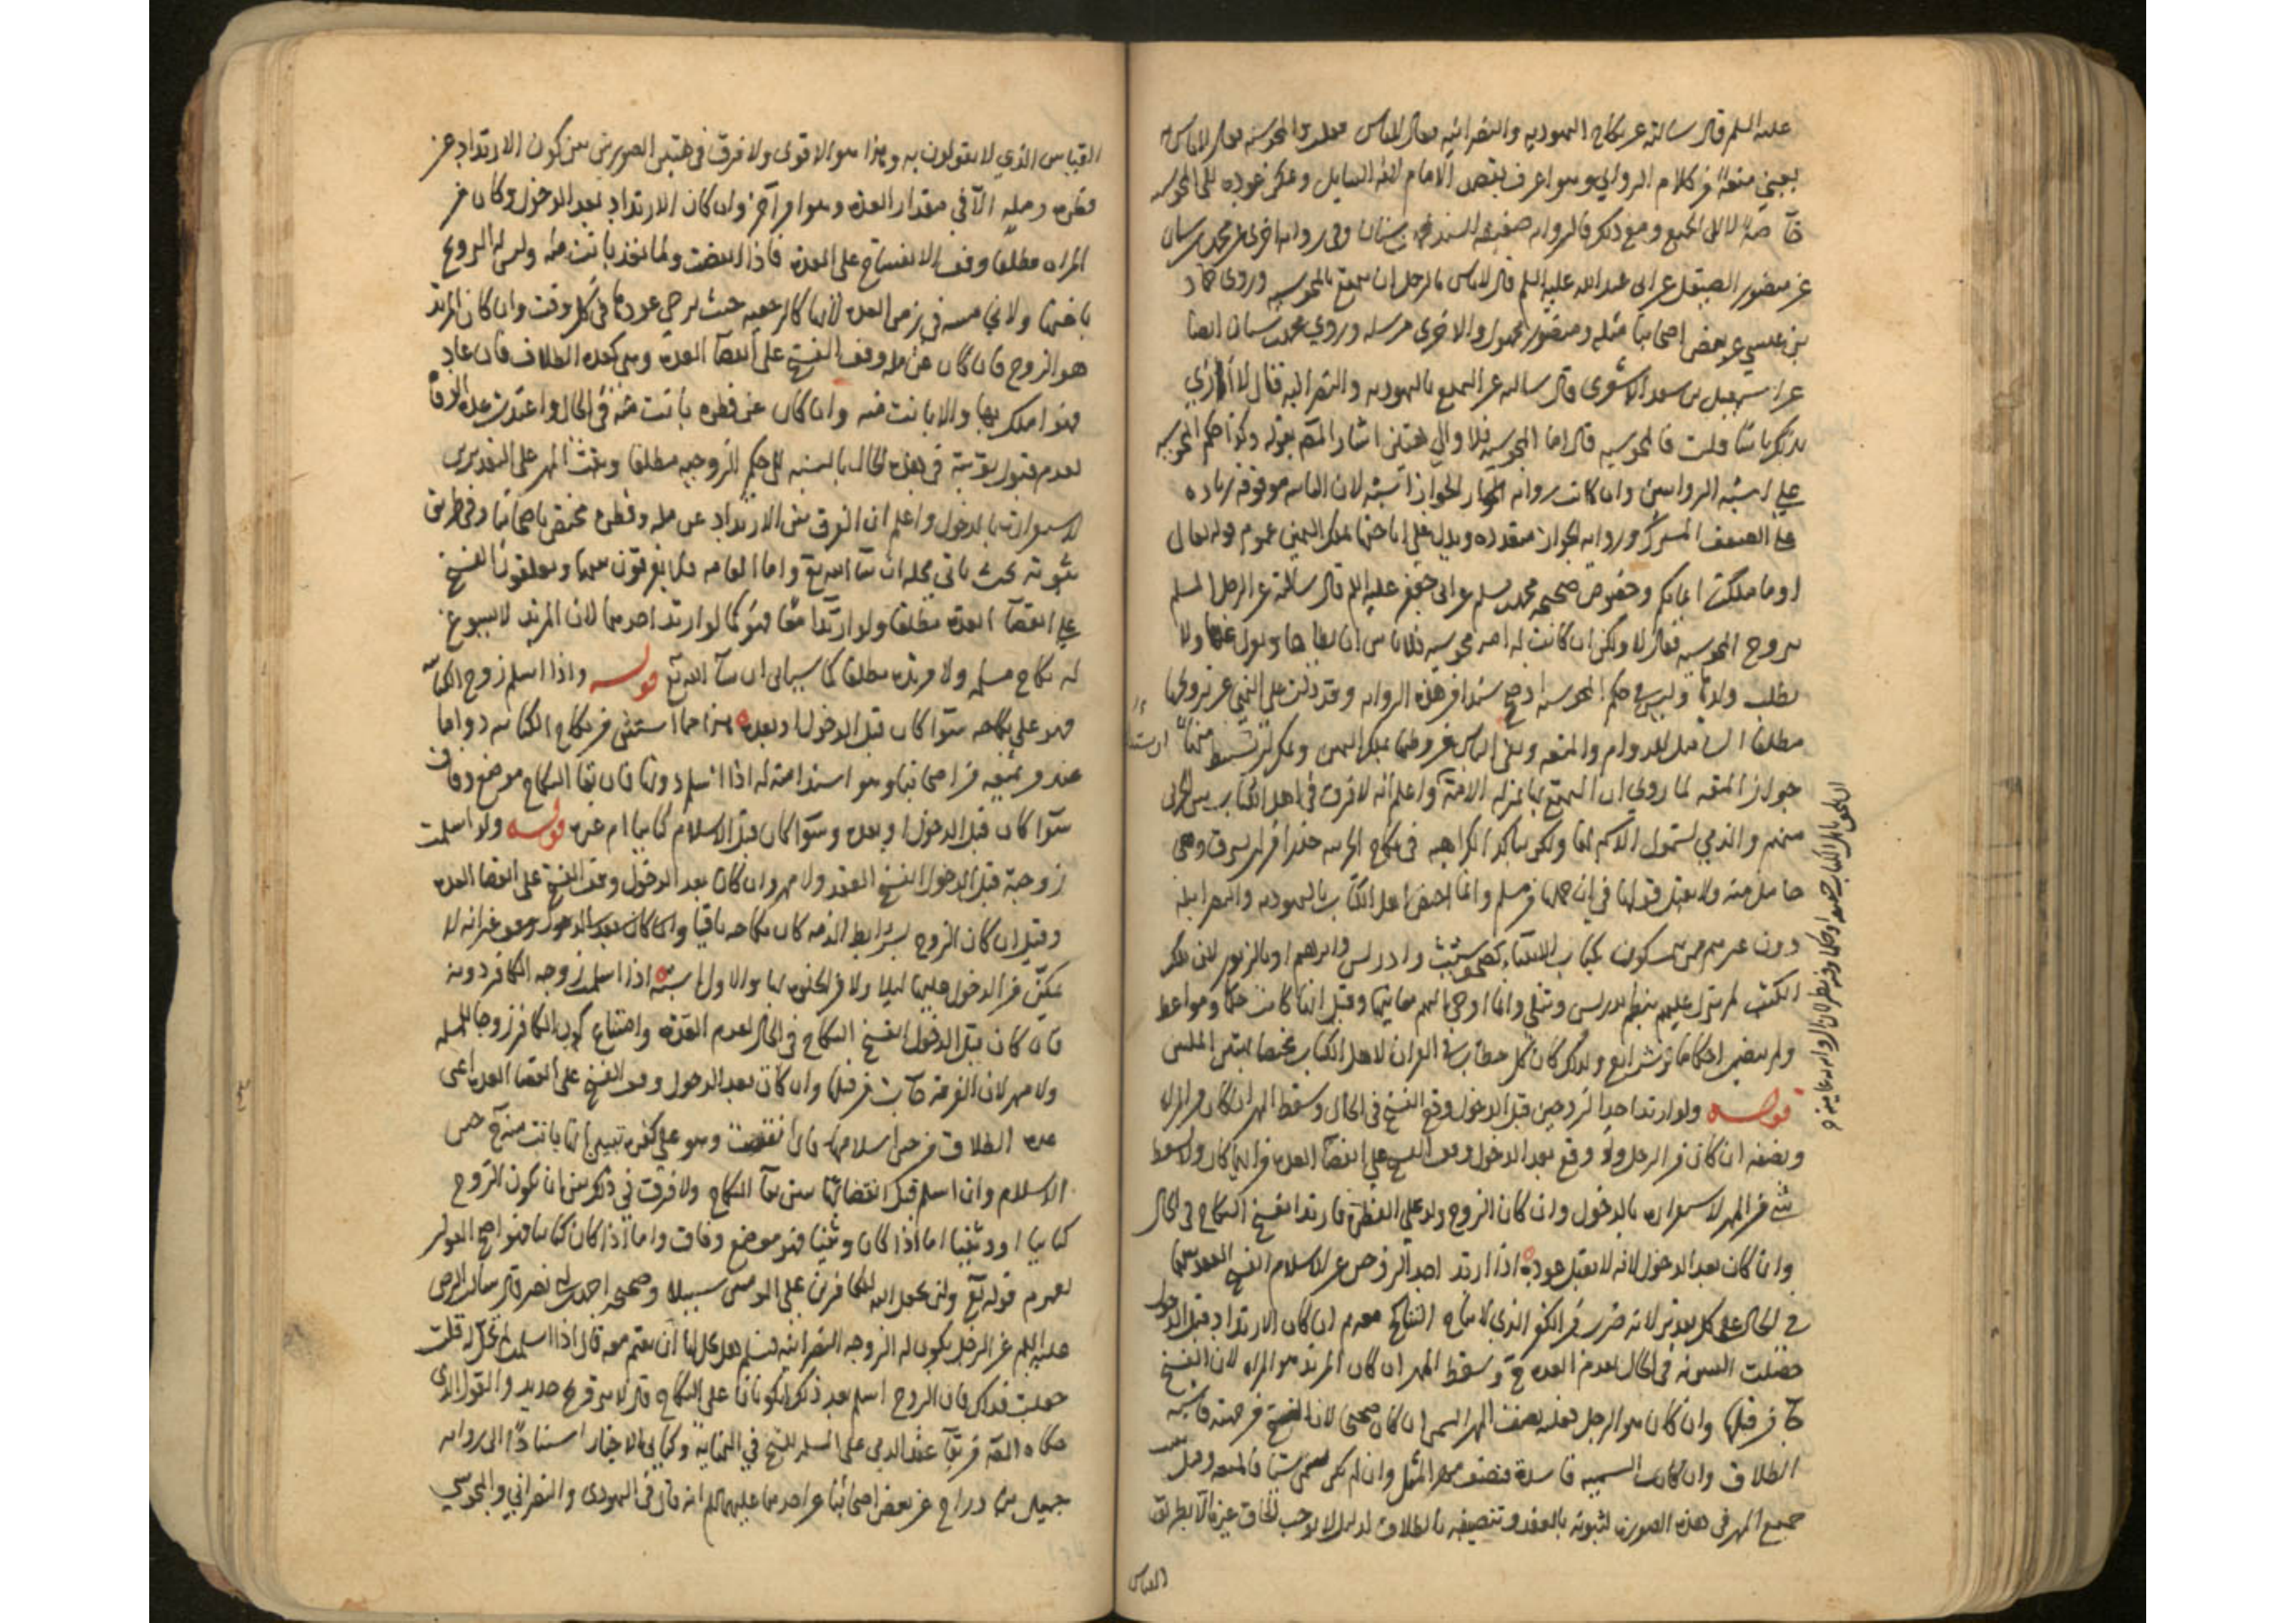 عليه السلم قال سالته عن نكاح اليهوديه والنصرانيه فقال لاباس فقلت والمجوسيه فقال لاباس به
يعني متعة من كلام الراوي وهو اعرف بقصد الامام لانه السايل ويمكن عوده الى المجوسيه
خاصة لا الى الجميع ومع ذلك فالروايه ضعيفه السند بمحمد بن سنان وفي روايه اخرى عن محمد بن سنان
عن منصور الصيقل عن ابي عبد الله عليه السلم قال لاباس بالرجل ان يتمتع بالمجوسيه وروى حماد
بن عيسى عن بعض اصحابنا مثله ومنصور مجهول والاخرى مرسله وروى محمد بن سنان ايضا
عن اسمعيل بن سعد الاشعرى قال سالته عن التمتع باليهوديه والنصرانيه فقال لا ارى
بذلك باسا قلت فالمجوسيه قال اما المجوسيه فلا والى هذين اشار المصنف بقوله وكذا حكم المجوسيه
على اشبه الروايتين وانما كانت روايه الجواز اشبه لان
على الضعف المشترك وروايه الجواز متعدده ويدل على اباحتها بملك اليمين عموم قوله تعالى
او ما ملكت ايمانكم وخصوص صحيحه محمد بن مسلم عن ابي جعفر عليه السلم قال سالته عن الرجل المسلم
يتزوج المجوسيه فقال لا ولكن ان كانت له امه مجوسيه فلاباس ان يطاها ويعزل عنها ولا
يطلب ولدها وليس في حكم المجوسيه اوضح سندا من هذه الروايه وقد دلت على النهي عن تزويجها
مطلقا الشامل للدوام والمتعه ونفي الباس عن وطئها بملك اليمين ويمكن ان يستنبط منها
جواز المتعه لما روي ان المتمتع بها بمنزله الامة واعلم انه لا فرق في اهل الكتاب بين الحربي
منهم والذمي لشمول الاسم لهما ولكن يتاكد الكراهيه في نكاح الحربيه حذرا من ان يسترق وهي
حامل منه ولا يقبل قولها في ان حملها من مسلم وانما اختص اهل الكتاب باليهوديه والنصرانيه
دون غيرهم ممن يتمسكون بكتاب الانبياء كصحف شيث وادريس وابراهيم او بالزبور لان تلك
الكتب لم تنزل عليهم بنظم يدرس ويتلى وانما اوحي اليهم معانيها وقيل انها كانت حكما ومواعظ
ولم يتضمن احكاما وشرايع ولذلك كان كل خطاب في القران لاهل الكتاب مختصا بهتين الملتين
قوله ولو ارتد احد الزوجين قبل الدخول وقع الفسخ في الحال وسقط المهر ان كان من المراه
ونصفه ان كان من الرجل ولو وقع بعد الدخول وقف الفسخ على انقضا العده من ايهما كان ولا يسقط
شي من المهر لاستقراره بالدخول وان كان الزوج ولد على الفطرة فارتد انفسخ النكاح في الحال
وان كان بعد الدخول لانه لا يقبل عوده اذا ارتد احد الزوجين عن الاسلام انفسخ العقد بينهما
في الحال على كل تقدير لانه ضرب من الكفر الذي لا يباح التناكح معه ثم ان كان الارتداد قبل الدخول
حصلت البينونه في الحال لعدم العده ح وسقط المهر ان كان المرتد هو المراه لان الفسخ
جا من قبلها وان كان هو الرجل فعليه نصف المهر المسمى ان كان صحيحا لان الفسخ من جهته فاشبه
الطلاق وان كانت التسميه فاسدة فنصف مهر المثل وان لم يكن سمى شيا فالمتعه وقيل يجب
جميع المهر في هذه الصوره لثبوته بالعقد وتنصيفه بالطلاق لدليل لا يوجب الحاق غيره الا بطريق
القياس
القياس الذي لا يقولون به وهذا هو الاقوى ولا فرق في هتين الصورتين بين كون الارتداد عن
فطره ومله الا في مقدار العده وهو امر آخر وان كان الارتداد بعد الدخول وكان من
المراه مطلقا وقف الانفساخ على العده فاذا انقضت ولما تعد بانت منه وليس له التزويج
باختها ولا بخامسه في زمن العده لانها كالرجعيه حيث يرجى عودها في كل وقت وان كان المرتد
هو الزوج فان كان عن مله وقف الفسخ على انقضا العدة وهي كعده الطلاق فان عاد
فهو املك بها والا بانت منه وان كان عن فطره بانت منه في الحال واعتدت عده الوفاة
لعدم قبول توبته في هذه الحال بالنسبه الى حكم الزوجيه مطلقا وثبت المهر على التقديرين
لاستقراره بالدخول واعلم ان الفرق بين الارتداد عن مله وفطره مختص باصحابنا وفي طريق
ثبوته بحث ياتي محله ان شا الله تع واما العامه فلا يفرقون بينهما ويعلقون الفسخ
على انقضا العده مطلقا ولو ارتدا معا فهو كما لو ارتد احدهما لان المرتد لا يسوغ
له نكاح مسلمه ولا مرتده مطلقا كما سياتي ان شا الله تع قوله واذا اسلم زوج الكتابيه
فهو على نكاحه سوا كان قبل الدخول او بعده هذا مما استثني من نكاح الكتابيه دواما
عند من يمنعه من اصحابنا وهو استدامته له اذا اسلم دونها فان بقا النكاح موضع وفاق
سوا كان قبل الدخول او بعده وسوا كان قبل الاسلام كتابيا ام غيره قوله ولو اسلمت
زوجة قبل الدخول انفسخ العقد ولا مهر وان كان بعد الدخول وقف الفسخ على انقضا العده
وقيل ان كان الزوج بشرايط الذمه كان نكاحه باقيا وان كان بعد الدخول غير انه لا
يمكن من الدخول عليها ليلا ولا من الخلوه بها والاول اشبه اذا اسلمت زوجه الكافر دونه
فان كان قبل الدخول انفسخ النكاح في الحال لعدم العدة وامتناع كون الكافر زوجا للمسلمه
ولا مهر لان الفرقة جات من قبلها وان كان بعد الدخول وقف الفسخ على انقضا العده اعني
عده الطلاق من حين اسلامها فان انقضت وهو على كفره تبين انها بانت منه ح حين
الاسلام وان اسلم قبل انقضائها تبين بقا النكاح ولا فرق في ذلك بين ان يكون الزوج
كتابيا او وثنيا اما اذا كان وثنيا فهو موضع وفاق واما اذا كان كتابيا فهو اصح القولين
لعموم قوله تع ولن يجعل الله للكافرين على المومنين سبيلا وصحيحه احمد بن ابي نصر قال سالت الرضى
عليه السلم عن الرجل يكون له الزوجه النصرانيه فتسلم هل يحل لها ان تقيم معه قال اذا اسلمت لم تحل له قلت
جعلت فداك فان الزوج اسلم بعد ذلك ايكونان على النكاح قال لا بتزويج جديد والقول الذي
حكاه المصنف من بقا عقد الذمي على المسلمه للشيخ في النهايه وكتابي الاخبار استنادا الى روايه
جميل بن دراج عن بعض اصحابنا عن احدهما عليهما السلم انه قال في اليهودى والنصراني والمجوسي